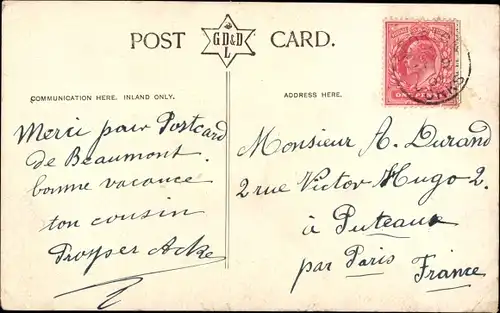 POST CARD.
G.D.&D.
L
COMMUNICATION HERE. INLAND ONLY.
ADDRESS HERE.
Merci pour Postcard
de Beaumont.
bonne vacance
ton cousin
Prosper Acke
Monsieur A. Durand
2 rue Victor Hugo 2.
à Puteaux
par Paris
France
ONE PENNY